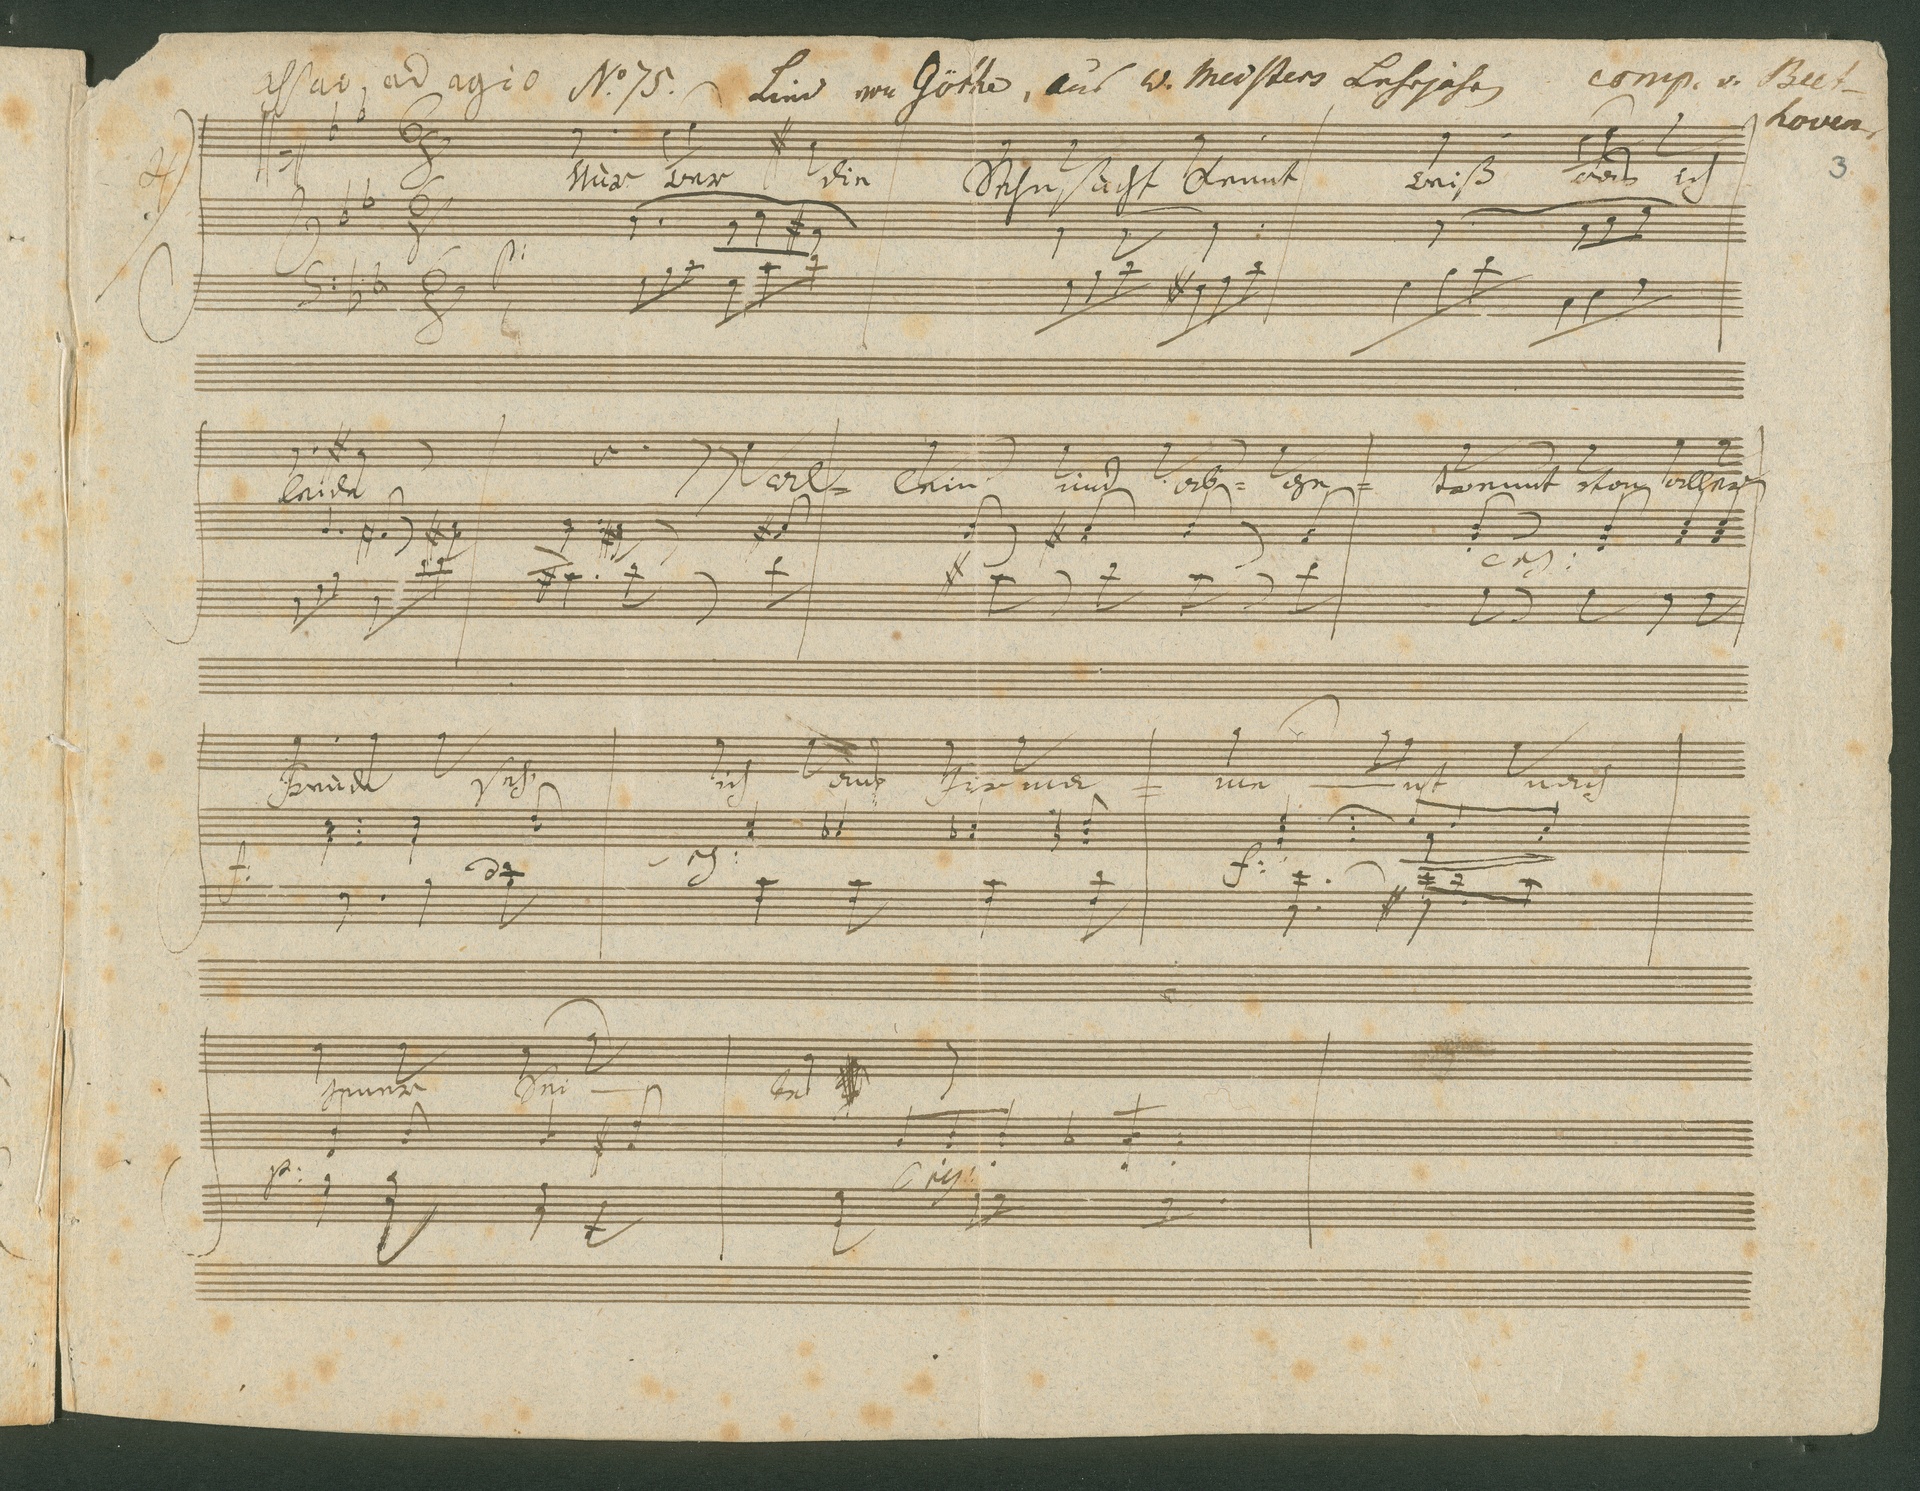 assai adagio No. 75. Lied von Göthe, aus W. Meisters Lehrjahre comp. v. Beet-
hoven.
3
Nur wer die Sehnsucht kennt weiß was ich
leide al= lein und ab= ge= trennt von aller
cres:
Freude seh ich ans Firma = me — nt nach
f: cres: f:
jener Sei — te
p: cres: